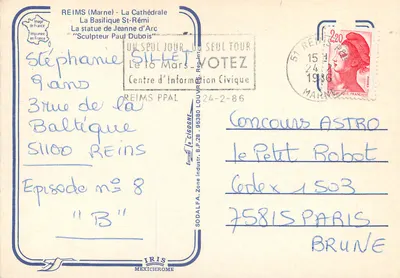 REIMS (Marne) - La Cathédrale
La Basilique St-Rémi
La statue de Jeanne d'Arc
"Sculpteur Paul Dubois"
UN SEUL JOUR, UN SEUL TOUR
Le 16 Mars VOTEZ
Centre d'Information Civique
REIMS PPAL 24-2-86
51 REIMS
15 H
24 - 2
1986
MARNE
2,20
Stéphanie SILLET
9 ans
3 rue de la
Baltique
51100 REIMS
Episode n° 8
"B"
la cigogne
SODALFA. 2ème Industr. B.P. 28 - 95380 LOUVRES
Concours ASTRO
le Petit Robot
Cedex 1503
75815 PARIS
BRUNE
IRIS
MEXICHROME